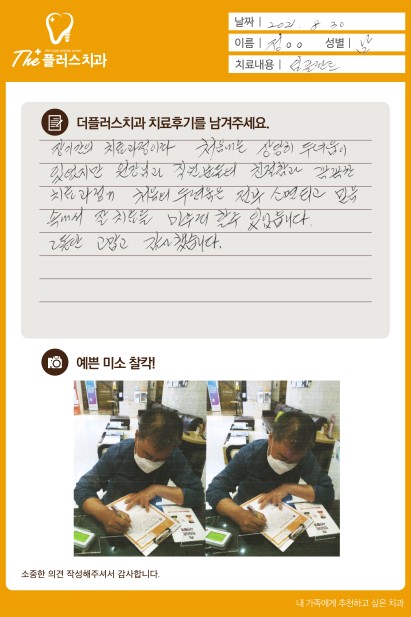 The+플러스치과
날짜 | 2021. 8. 30
이름 | 정00 성별 | 남
치료내용 | 임플란트
더플러스치과 치료후기를 남겨주세요.
장기간의 치료과정이라 처음에는 상당히 두려움이
있었지만 원장님과 직원분들의 친절함과 꼼꼼한
치료과정에 처음의 두려움은 전부 소멸되고 믿음
속에서 잘 치료를 마무리 할수 있었습니다.
그동안 고맙고 감사했습니다.
예쁜 미소 찰칵!
소중한 의견 작성해주셔서 감사합니다.
내 가족에게 추천하고 싶은 치과